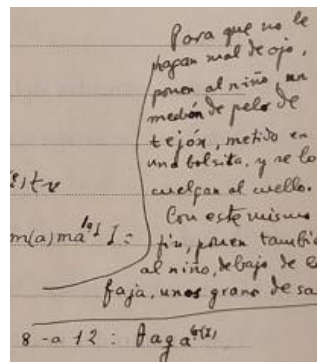 Para que no le
hagan mal de ojo,
ponen al niño, un
mechón de pelo de
tejón, metido en
una bolsita, y se lo
cuelgan al cuello.
Con este mismo
fin, ponen tambié
al niño, debajo de
faja, unos grano de sa
m(a)ma
8-a 12: Baga